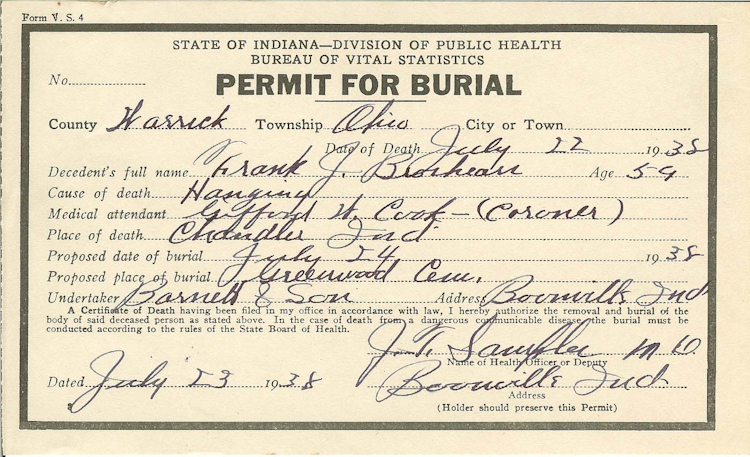 Form V. S. 4
STATE OF INDIANA—DIVISION OF PUBLIC HEALTH
BUREAU OF VITAL STATISTICS
No.
PERMIT FOR BURIAL
County Warrick Township Ohio City or Town
Date of Death July 22 1938
Decedent's full name Frank J. Age 59
Cause of death Hanging
Medical attendant Gifford W. Cook - (Coroner)
Place of death Chandler Ind
Proposed date of burial July 24 1938
Proposed place of burial Greenwood Cem.
Undertaker Barnett & Son Address Boonville Ind
A Certificate of Death having been filed in my office in accordance with law, I hereby authorize the removal and burial of the
body of said deceased person as stated above. In the case of death from a dangerous communicable disease the burial must be
conducted according to the rules of the State Board of Health.
J. T. M D
Name of Health Officer or Deputy
Dated July 23 1938 Boonville Ind
Address
(Holder should preserve this Permit)